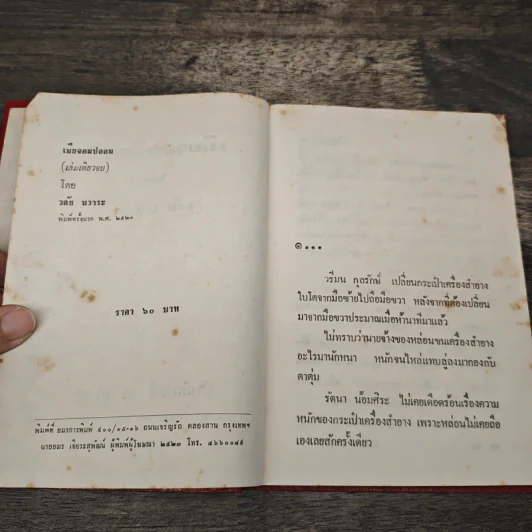 เมียจอมปลอม
(เล่มเดียวจบ)
โดย
วลัย นวาระ
พิมพ์ครั้งแรก พ.ศ. ๒๕๒๓
ราคา ๖๐ บาท
พิมพ์ที่ ยมราชการพิมพ์ ๕๐๐/๑๕-๑๖ ถนนเจริญรัถ คลองสาน กรุงเทพฯ
นายอมร เจียระสุพัฒน์ ผู้พิมพ์ผู้โฆษณา ๒๕๒๓ โทร. ๔๖๖๐๐๔๕
๑...
วรีมน กุลรักษ์ เปลี่ยนกระเป๋าเครื่องสำอาง
ใบโตจากมือซ้ายไปถือมือขวา หลังจากที่ต้องเปลี่ยน
มาจากมือขวาประมาณเมื่อห้านาทีมาแล้ว
ไม่ทราบว่านายจ้างของหล่อนขนเครื่องสำอาง
อะไรมานักหนา หนักจนไหล่แทบลู่ลงมากองกับ
ตาตุ่ม
รัตนา น้อมศิระ ไม่เคยเดือดร้อนเรื่องความ
หนักของกระเป๋าเครื่องสำอาง เพราะหล่อนไม่เคยถือ
เองเลยสักครั้งเดียว